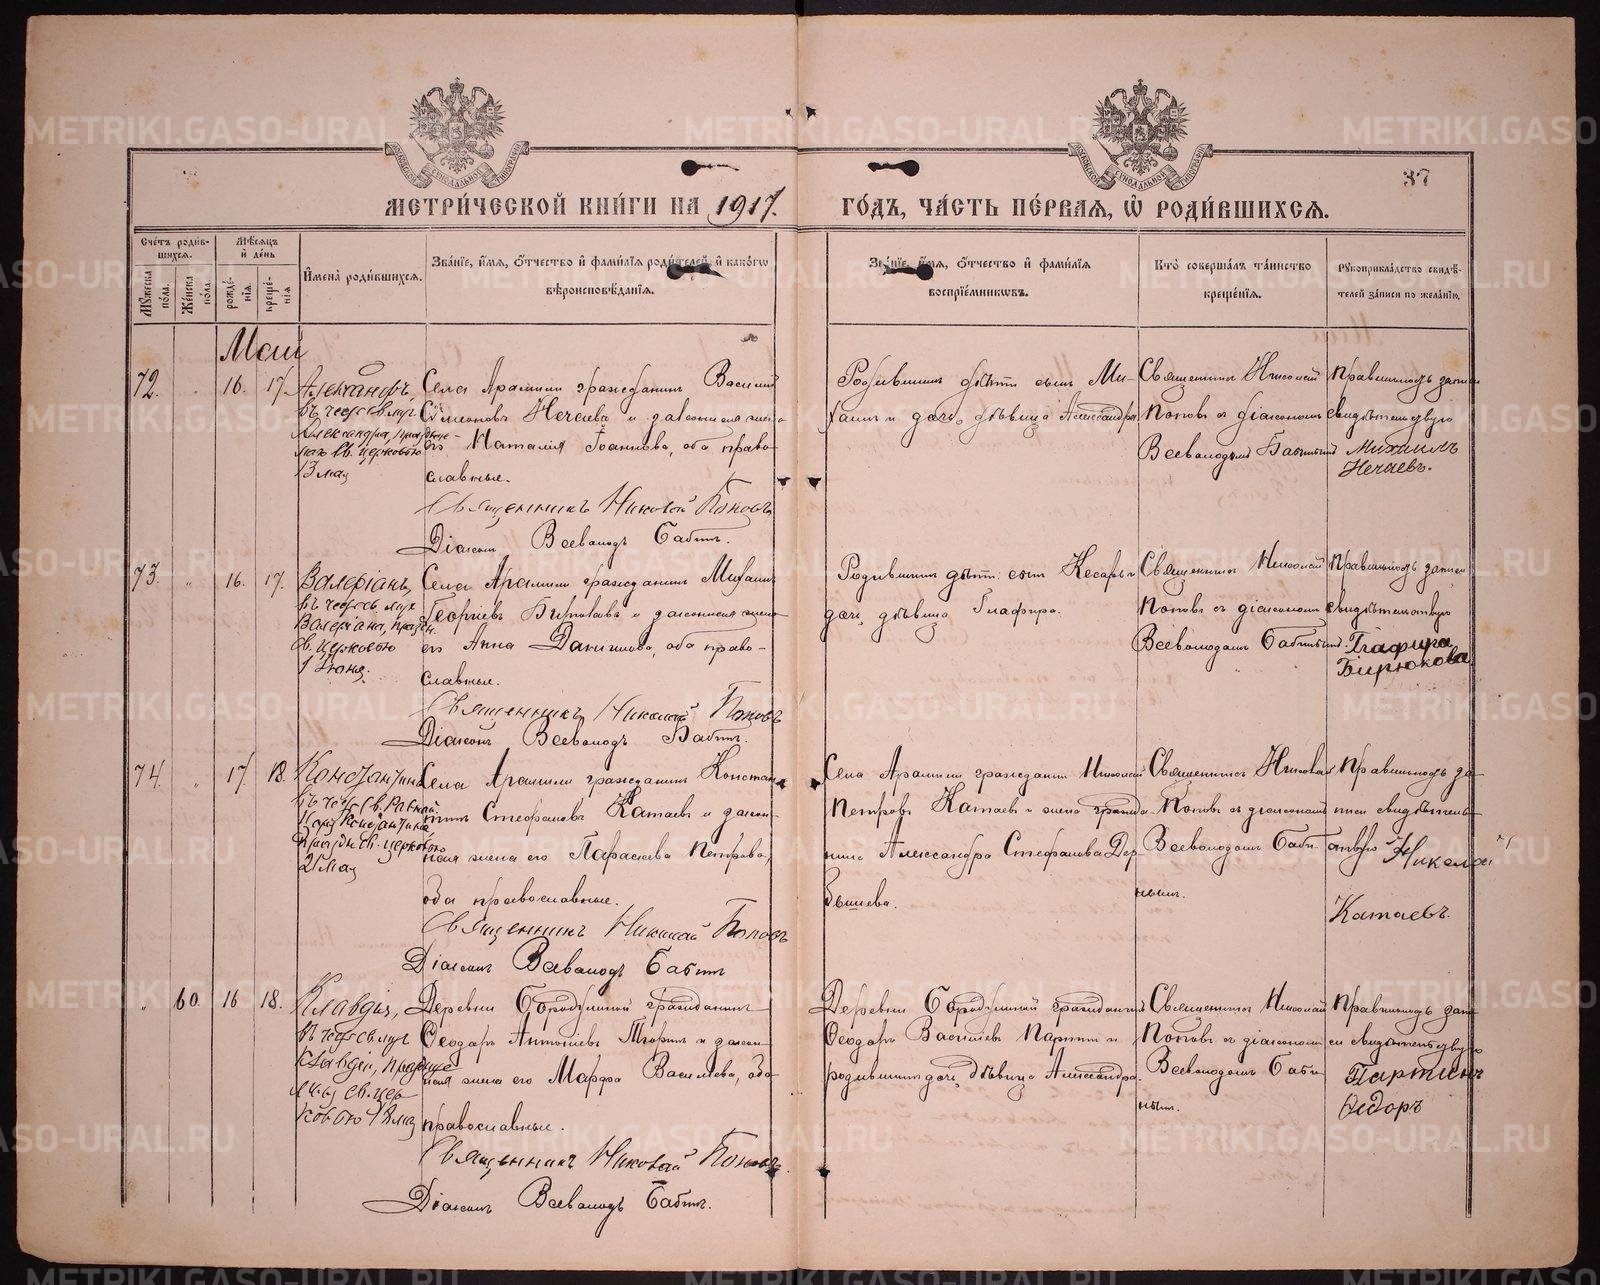 37
МЕТРИ́ЧЕСКОЙ КНИ́ГИ НА 1917. ГО́ДЪ, ЧА́СТЬ ПЕ́РВАЯ, Ѽ РОДИ́ВШИХСЯ.
Сче́тъ роди́в-
шихся.
Му́жеска
по́ла.
Же́нска
по́ла.
Мѣ́сяцъ
и҆ де́нь
рожде́-
нія.
креще́-
нія.
И҆мена̀ роди́вшихся.
Зва́ніе, и҆́мя, ѻ҆́тчество и҆ фами́лія роди́телей, и҆ како́гѡ
вѣроисповѣ́данія.
Зва́ніе, и҆́мя, ѻ҆́тчество и҆ фами́лія
воспріе́мниковъ.
Кто̀ соверша́лъ та́инство
креще́нія.
Рукоприкла́дство свидѣ́-
телей за́писи по жела́нію.
Май
72.
16.
17.
Александръ,
въ честь св. муч.
Александра, праздвуе-
маго Св. церковью
13 мая
Села Арамили гражданинъ Василий
Симеоновъ Нечаевъ и законная жена
его Наталия Іоаннова, оба право-
славные.
Священникъ Николай Поповъ
Діаконъ Всеволодъ Бабинъ.
Родившихъ дѣти: сынъ Ми-
хаилъ и дочь, дѣвица Александра.
Священникъ Николай
Поповъ съ діакономъ
Всеволодомъ Бабинымъ
Правильность записи
свидѣтельствую
Михаилъ
Нечаевъ.
73.
16.
17.
Валеріанъ,
въ честь св. муч.
Валеріана, празд.
св. церковью
1 Іюня.
Села Арамили гражданинъ Михаилъ
Георгиевъ Бирюковъ и законная жена
его Анна Данилова, оба право-
славные.
Священникъ Николай Поповъ
Діаконъ Всеволодъ Бабинъ.
Родившихъ дѣти: сынъ Кесарь и
дочь, дѣвица Глафира.
Священникъ Николай
Поповъ съ діакономъ
Всеволодомъ Бабинымъ.
Правильность записи
свидѣтельствую
Глафира
Бирюкова
74.
17.
18.
Константинъ
въ честь Св. Равноап.
Царя Константина,
празд. Св. церковью
21 Мая
Села Арамили гражданинъ Констан-
тинъ Стефановъ Катаевъ и закон-
ная жена его Параскева Петрова,
оба православные.
Священникъ Николай Поповъ
Діаконъ Всеволодъ Бабинъ
Села Арамили гражданинъ Николай
Петровъ Катаевъ и жена гражда-
нина Александра Стефанова Дер-
бышева.
Священникъ Николай
Поповъ съ діакономъ
Всеволодомъ Баби-
нымъ.
Правильность за-
писи свидѣтель-
ствую Николай
Катаевъ.
60.
16
18.
Клавдія,
въ честь св. муч.
Клавдіи, празднуе-
мыя св. цер
ковью 18 мая
Деревни Бородулиной гражданинъ
Ѳеодоръ Антоніевъ Тюринъ и закон-
ная жена его Марѳа Васильева, оба
православные.
Священникъ Николай Поповъ
Діаконъ Всеволодъ Бабинъ.
Деревни Бородулиной гражданинъ
Ѳеодоръ Васильевъ Партинъ и
родившихъ дочь, дѣвица Александра.
Священникъ Николай
Поповъ съ діакономъ
Всеволодомъ Баби-
нымъ.
Правильность запи-
си свидѣтельствую
Партинъ
Федоръ
METRIKI.GASO-URAL.RU